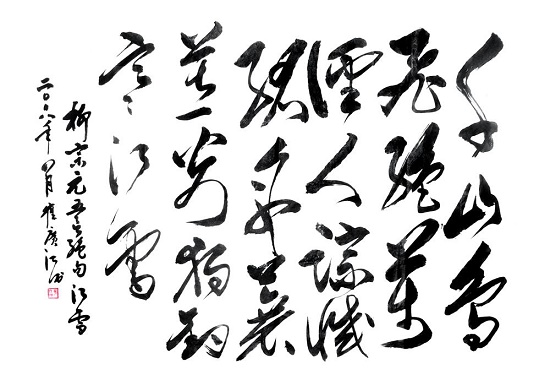 千山鳥
飛絕萬
徑人踪滅
孤舟蓑
笠翁獨釣
寒江雪
柳宗元五言絕句江雪
二〇〇八年八月